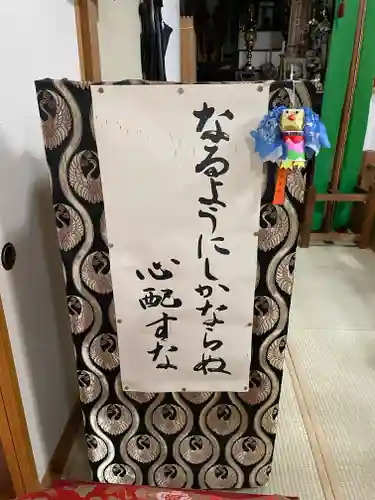 なるようにしかならぬ
心配すな